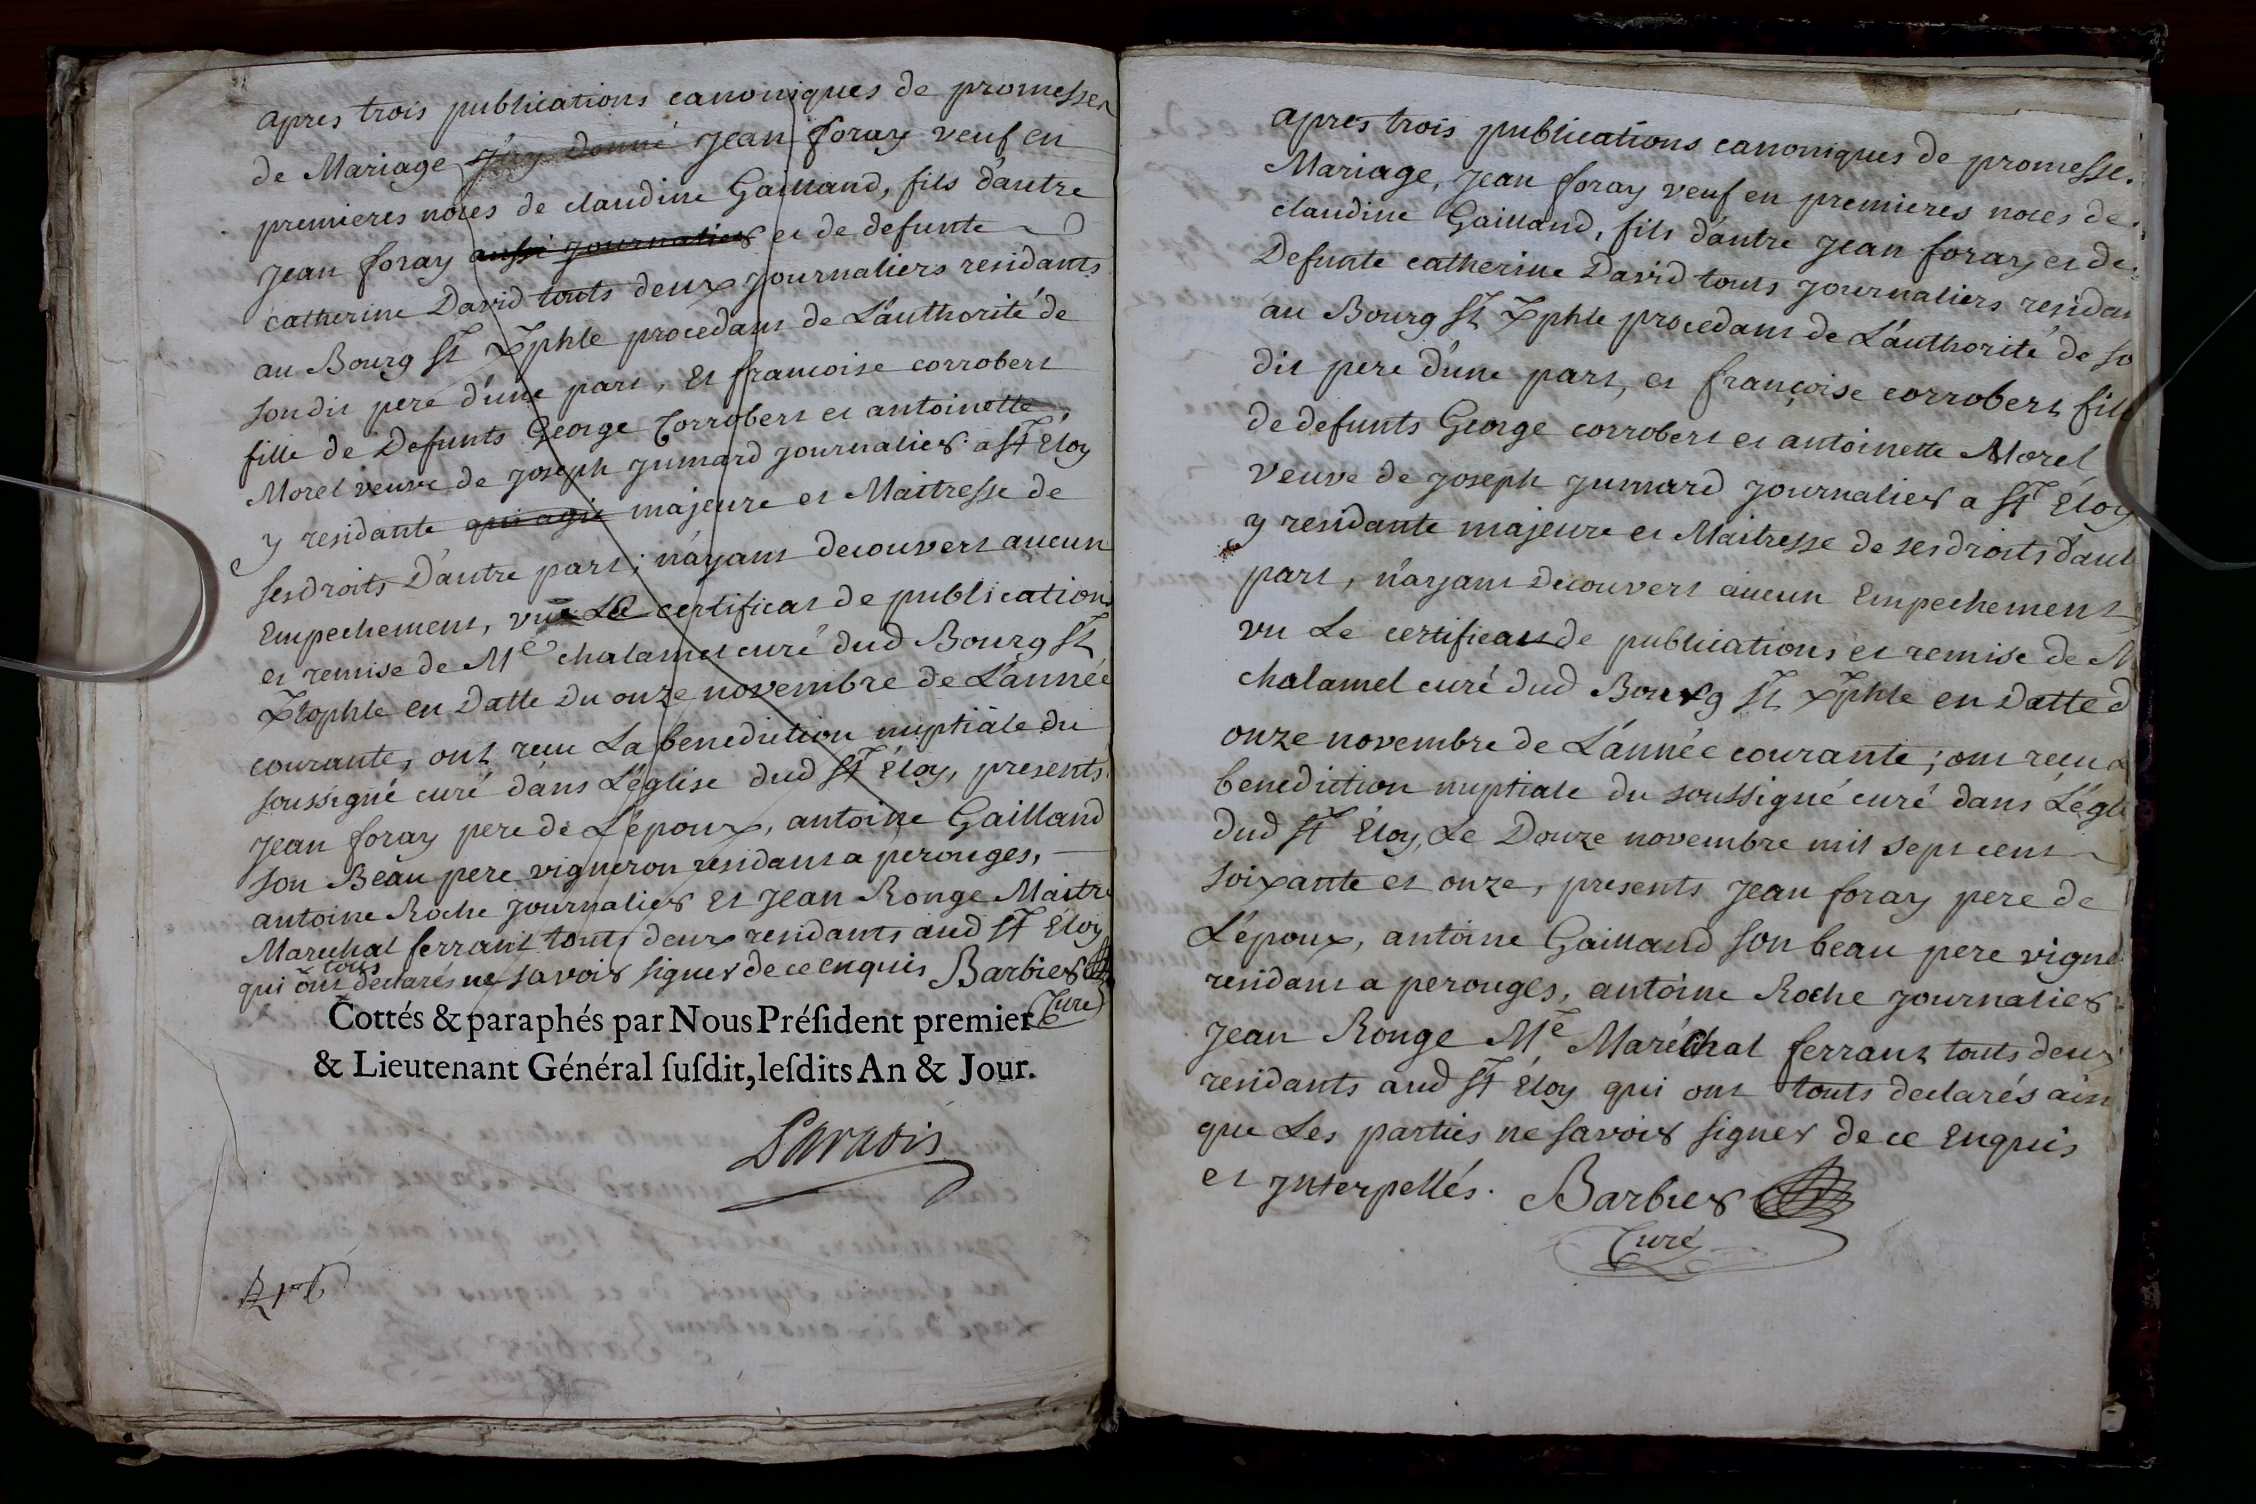 apres trois publications canoniques de promesses
de Mariage j'ay donné Jean foray veuf en
premieres noces de claudine Gailland, fils d'autre
Jean foray aussi journalier et de defunte
catherine David touts deux journaliers residants
au Bourg St Xphle procedant de L'authorité de
son dit pere d'une part, et francoise corrobert
fille de Defunts George Corrobert et antoinette
Morel veuve de joseph jumard journalier a St Eloy
y residante qui agit majeure et Maitresse de
ses droits D'autre part; n'ayant decouvert aucun
Empechement, vu Le certificat de publications
et remise de Me chalamel curé dud Bourg St
Xtophle en Datte Du onze novembre de L'année
courante, ont recu La benediction nuptiale du
soussigné curé dans L'église dud St Eloy, presents
Jean foray pere de L'époux, antoine Gailland
son Beau pere vigneron residant a perouges,
antoine Roche journalier Et Jean Ronge Maitre
Marechal ferrant touts deux residants aud St Eloy
qui ont touts declarés ne savoir signer de ce enquis Barbier
Curé
Cottés & paraphés par Nous Préſident premier
& Lieutenant Général ſuſdit, leſdits An & Jour.
apres trois publications canoniques de promesse.
Mariage, Jean foray veuf en premieres noces de
claudine Gailland, fils d'autre Jean foray et de
Defunte catherine David touts journaliers residan
au Bourg St Xphle procedant de L'authorité de so
dit pere d'une part, et françoise corrobert fille
de defunts George corrobert et antoinette Morel
veuve de joseph jumard journalier a St Eloy
y residante majeure et Maitresse de ses droits d'aut
part, n'ayant Decouvert aucun Empechement
vu Le certificat de publications et remise de M
chalamel curé dud Bourg St Xphle en Datte d
onze novembre de L'année courante; ont recu
benediction nuptiale du soussigné curé dans L'égl
dud St Eloy, Le Douze novembre mil sept cent
soixante et onze, presents Jean foray pere de
L'époux, antoine Gailland son beau pere vigne
residant a perouges, antoine Roche journalier
Jean Ronge Me Maréchal ferrant touts deux
residants aud St Eloy qui ont touts declarés ain
que Les parties ne savoir signer de ce Enquis
et jnterpellés. Barbier
Curé